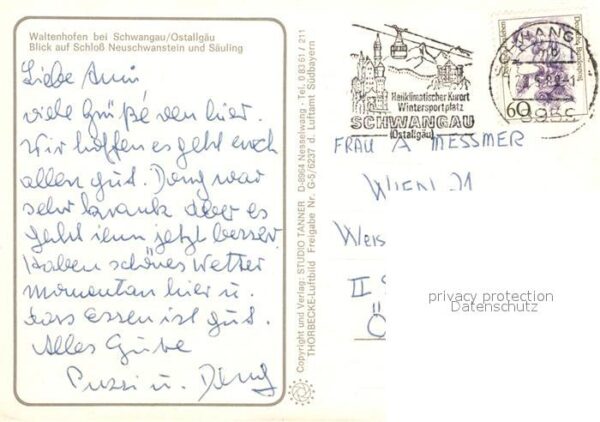 Waltenhofen bei Schwangau/Ostallgäu
Blick auf Schloß Neuschwanstein und Säuling
Liebe Anni
viele Grüße von hier.
Wir hoffen es geht euch
allen gut. Dong war
sehr krank aber es
geht ihm jetzt besser.
Haben schönes Wetter
momentan hier u.
das Essen ist gut.
Alles Gute
Pussi u. Dong
Copyright und Verlag: STUDIO TANNER D-8964 Nesselwang - Tel. 0 83 61 / 211
THORBECKE-Luftbild Freigabe Nr. G-5/6237 d. Luftamt Südbayern
Heilklimatischer Kurort
Wintersportplatz
SCHWANGAU
(Ostallgäu)
SCHWANGAU
60
FRAU A MESSMER
WIEN 21
WEIS
II
Ö
privacy protection
Datenschutz